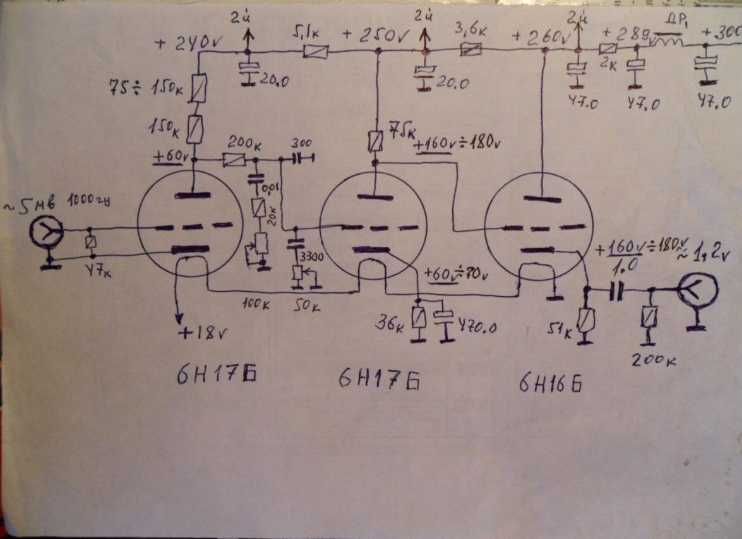 2й
2й
2й
ДР₁
+ 240v
5,1к
+ 250v
3,6к
+ 260v
+ 289
+ 300
2к
75 ÷ 150к
20.0
20.0
47.0
47.0
47.0
150к
75к
200к
300
+160v ÷ 180v
+60v
0,01
~ 5 мв 1000гц
20к
47к
3300
+60v ÷ 70v
+160v ÷ 180v
~ 1,2v
1.0
100к
50к
36к
470.0
51к
200к
+18v
6Н17Б
6Н17Б
6Н16Б